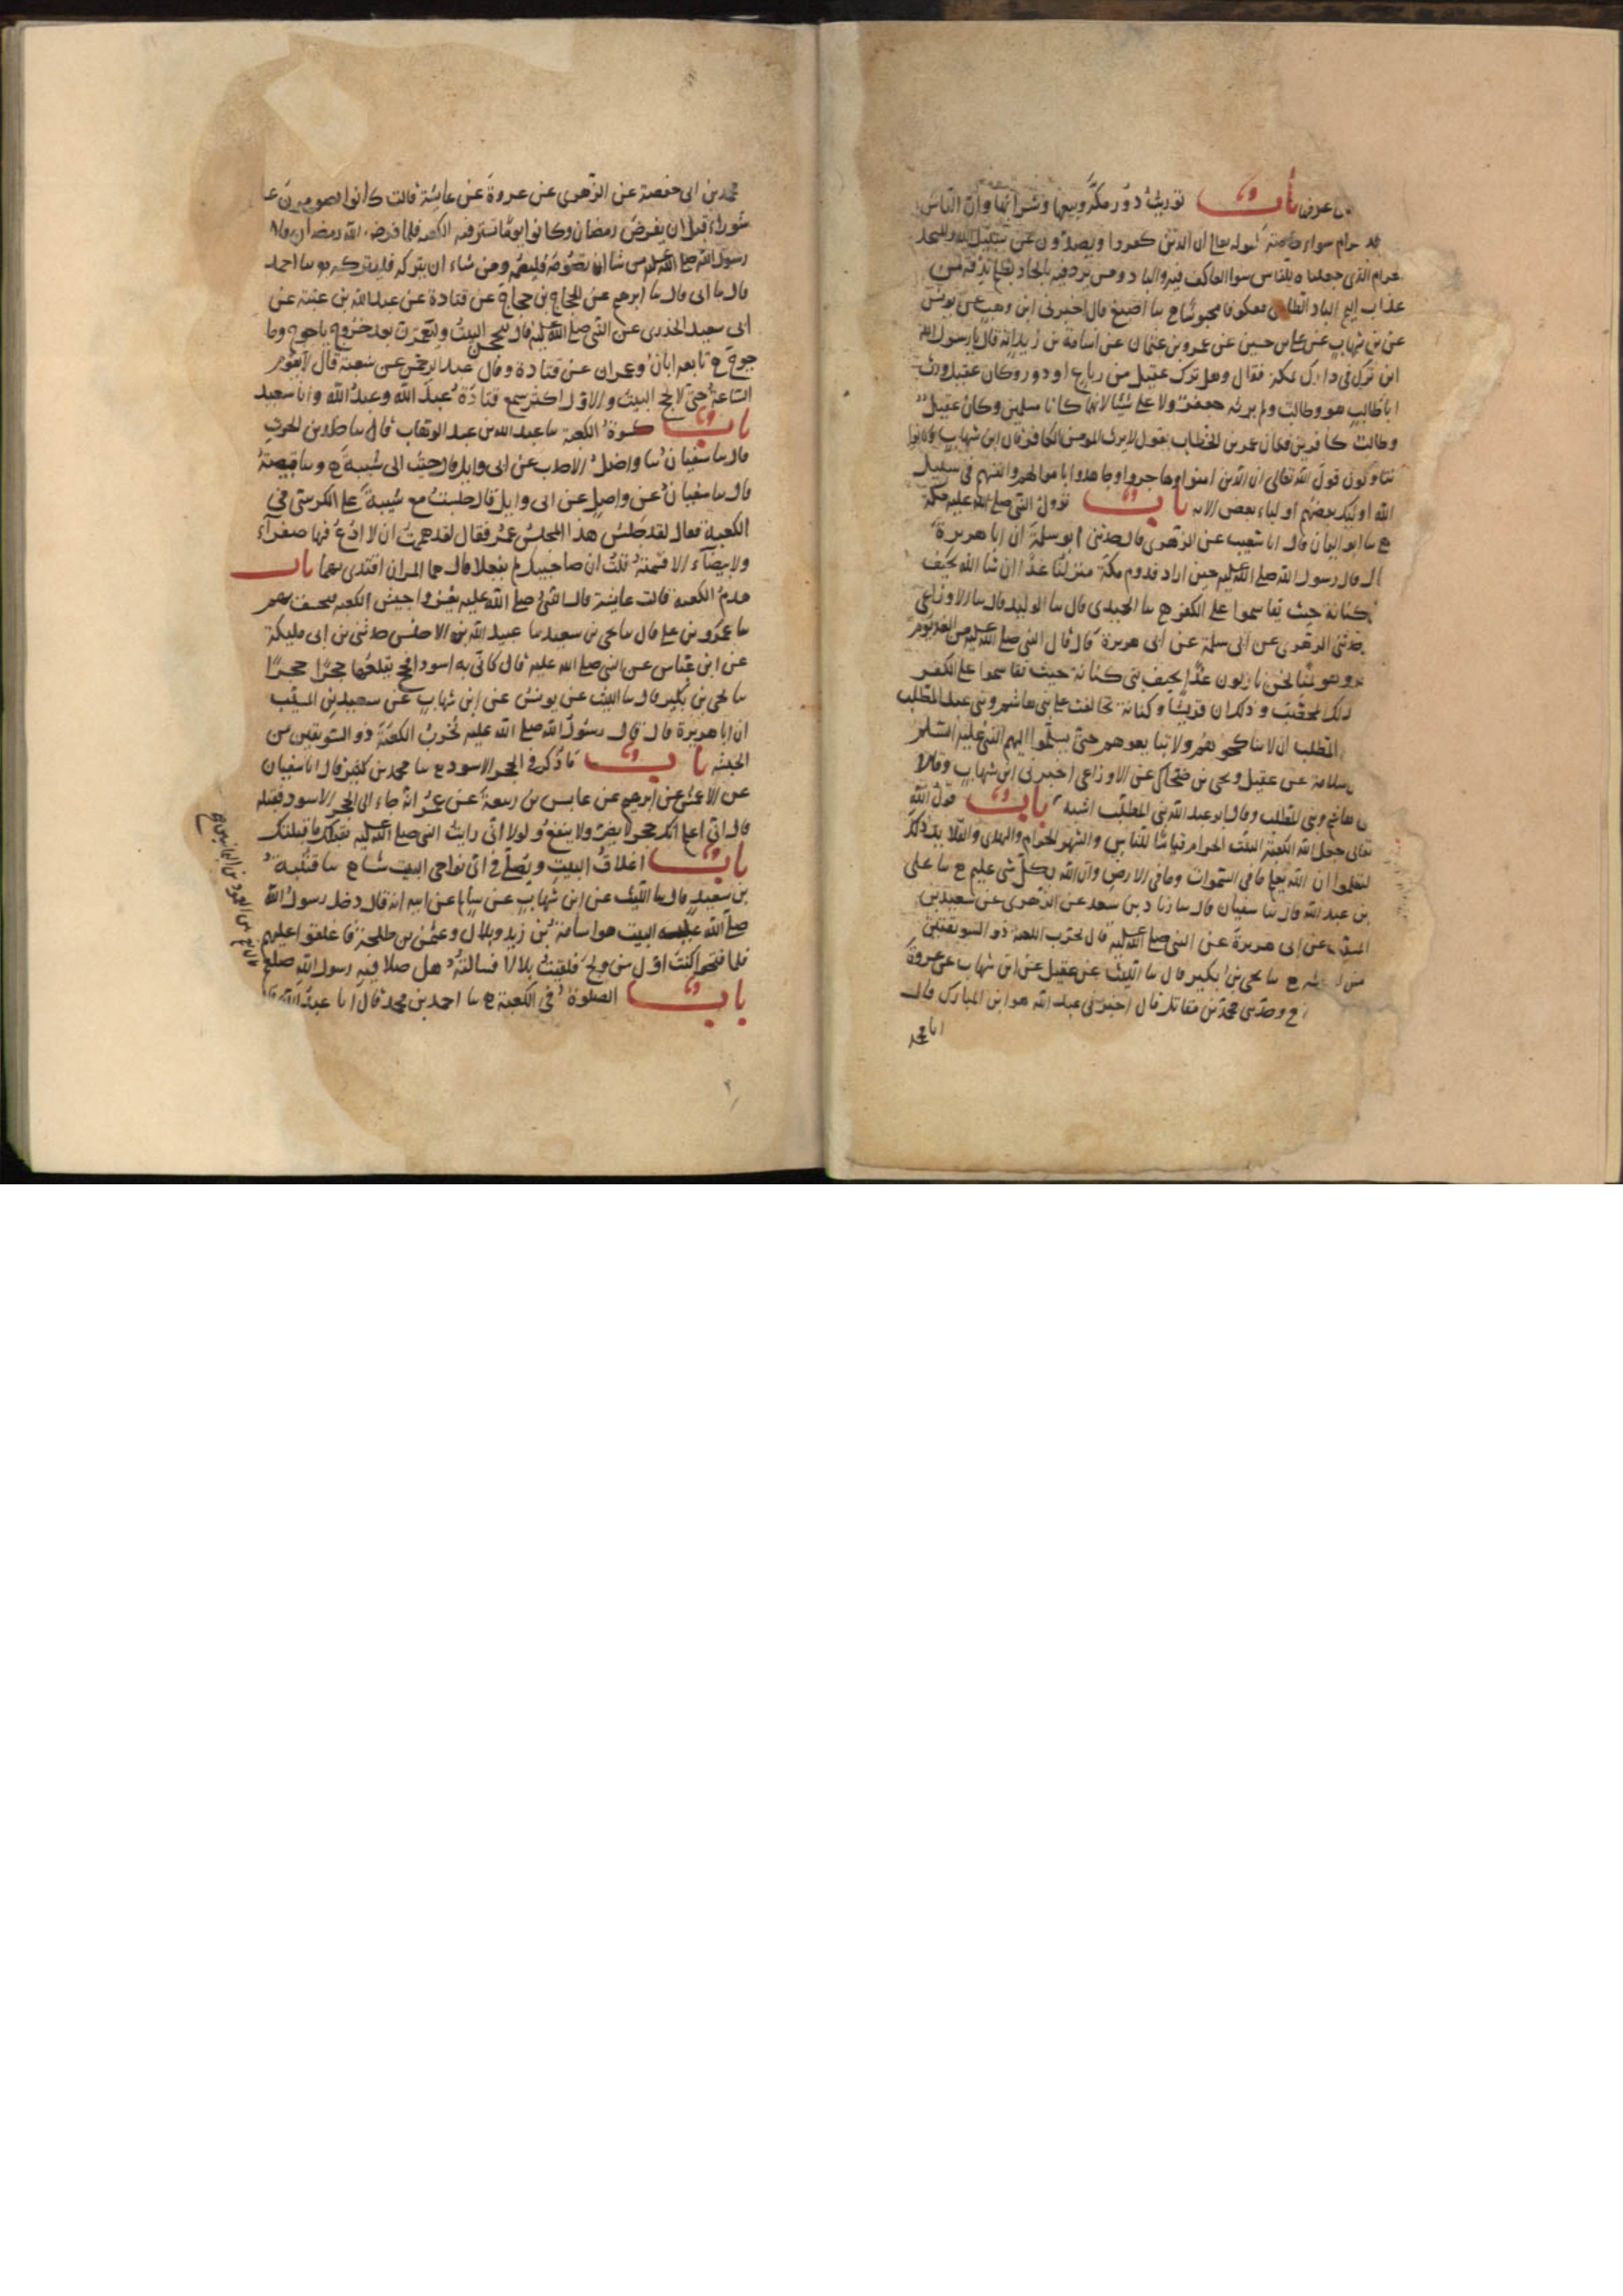 من عرفه باب توريث دور مكة وبيعها وشرائها وان الناس
جد حرام سواء خاصة لقوله تعالى ان الذين كفروا ويصدون عن سبيل الله والمسجد
لحرام الذى جعلناه للناس سوا العاكف فيه والباد ومن يرد فيه بالحاد بظلم نذقه من
عذاب اليم الباد الطارى معكوفا محبوسا ح سا اصبغ قال اخبرنى ابن وهب عن يونس
عن بن شهاب عن على بن حسين عن عمرو بن عثمان عن اسامة بن زيد انه قال يا رسول الله
اين تنزل فى دارك بمكة فقال وهل ترك عقيل من رباع او دور وكان عقيل ورث
ابا طالب هو وطالب ولم يرثه جعفر ولا على شيئا لانهما كانا مسلمين وكان عقيل
وطالب كافرين فكان عمر بن الخطاب يقول لا يرث المومن الكافر قال ابن شهاب وكانوا
يتاولون قول الله تعالى ان الذين امنوا وهاجروا وجاهدوا باموالهم وانفسهم فى سبيل
الله اوليك بعضهم اولياء بعض الايه باب نزول النبى صلى الله عليه مكة
ح سا ابو اليمان قال انا شعيب عن الزهرى قال حدثنى ابو سلمة ان ابا هريرة
قال قال رسول الله صلى الله عليه حين اراد قدوم مكة منزلنا غدا ان شا الله بخيف
كنانة حيث تقاسموا على الكفر ح سا الحميدى قال سا الوليد قال سا الاوزاعى
حدثنى الزهرى عن ابى سلمة عن ابى هريرة قال قال النبى صلى الله عليه من الغد يوم
وهو بمنا نحن نازلون غدا بخيف بنى كنانة حيث تقاسموا على الكفر
ذلك المحصب وذلك ان قريشا وكنانة تحالفت على بنى هاشم وبنى عبد المطلب
المطلب ان لا يناكحوهم ولا يبايعوهم حتى يسلموا اليهم النبى عليه السلم
سلامة عن عقيل ويحى بن ضحاك عن الاوزاعى اخبرنى ابن شهاب وقالا
هاشم وبنى المطلب وقال ابو عبد الله بنى المطلب اشبه باب قول الله
تعالى جعل الله الكعبة البيت الحرام قياما للناس والشهر الحرام والهدى والقلايد ذلك
لتعلموا ان الله يعلم ما فى السموات وما فى الارض وان الله بكل شى عليم ح سا على
بن عبد الله قال سا سفيان قال سا زياد بن سعد عن الزهرى عن سعيد بن
المسيب عن ابى هريرة عن النبى صلى الله عليه قال يخرب الكعبة ذو السويقتين
من الحبشه ح سا يحى بن بكير قال سا الليث عن عقيل عن ابن شهاب عن عروة
ح وحدثنى محمد بن مقاتل قال اخبرنى عبد الله هو ابن المبارك قال
انا محمد
محمد بن ابى حفصة عن الزهرى عن عروة عن عايشة قالت كانوا يصومون عا
شوراء قبل ان يفرض رمضان وكانوا يوما تستر فيه الكعبه فلما فرض الله رمضان قال
رسول الله صلى الله عليه من شا ان يصومه فليصمه ومن شاء ان يتركه فليتركه سا احمد
قال سا ابى قال سا ابرهيم عن الحجاج بن حجاج عن قتادة عن عبد الله بن عتبة عن
ابى سعيد الخدرى عن النبى صلى الله عليه قال ليحجن البيت وليعتمرن بعد خروج ياجوج وما
جوج ح تابعه ابان وعمران عن قتادة وقال عبد الرحمن عن شعبة قال لا تقوم
الساعة حتى لا يحج البيت والاول اكثر سمع قتادة عبد الله وعبد الله وابا سعيد
باب كسوة الكعبة سا عبد الله بن عبد الوهاب قال سا خالد بن الحرث
قال سا سفيان سا واصل الاحدب عن ابى وايل قال جيت الى شيبة ح وسا قبيصة
قال سا سفيان عن واصل عن ابى وايل قال جلست مع شيبة على الكرسى فى
الكعبة فقال لقد جلس هذا المجلس عمر فقال لقد هممت ان لا ادع فيها صفراء
ولا بيضاء الا قسمته قلت ان صاحبيك لم يفعلا قال هما المران اقتدى بهما باب
هدم الكعبة قالت عايشة قال النبى صلى الله عليه يغزوا جيش الكعبه فيخسف بهم
سا عمرو بن على قال سا يحى بن سعيد سا عبيد الله بن الاخنس حدثنى بن ابى مليكة
عن ابن عباس عن النبى صلى الله عليه قال كانى به اسود افحج يقلعها حجرا حجرا
سا يحى بن بكير قال سا الليث عن يونس عن ابن شهاب عن سعيد بن المسيب
ان ابا هريرة قال قال رسول الله صلى الله عليه يخرب الكعبة ذو السويقتين من
الحبشه باب ما ذكر فى الحجر الاسود ح سا محمد بن كثير قال انا سفيان
عن الاعمش عن ابرهيم عن عابس بن ربيعة عن عمر انه جاء الى الحجر الاسود فقبله
قال انى اعلم انك حجر لا يضر ولا ينفع ولولا انى رايت النبى صلى الله عليه يقبلك ما قبلتك
باب اغلاق البيت ويصلى فى اى نواحى البيت شا ح سا قتيبة
بن سعيد قال سا الليث عن ابن شهاب عن سالم عن ابيه انه قال دخل رسول الله
صلى الله عليه البيت هو اسامة بن زيد وبلال وعثمن بن طلحة فاغلقوا عليهم
فلما فتحوا كنت اول من ولج فلقيت بلالا فسالته هل صلا فيه رسول الله صلى
باب الصلوة فى الكعبة ح سا احمد بن محمد قال انا عبد الله قال